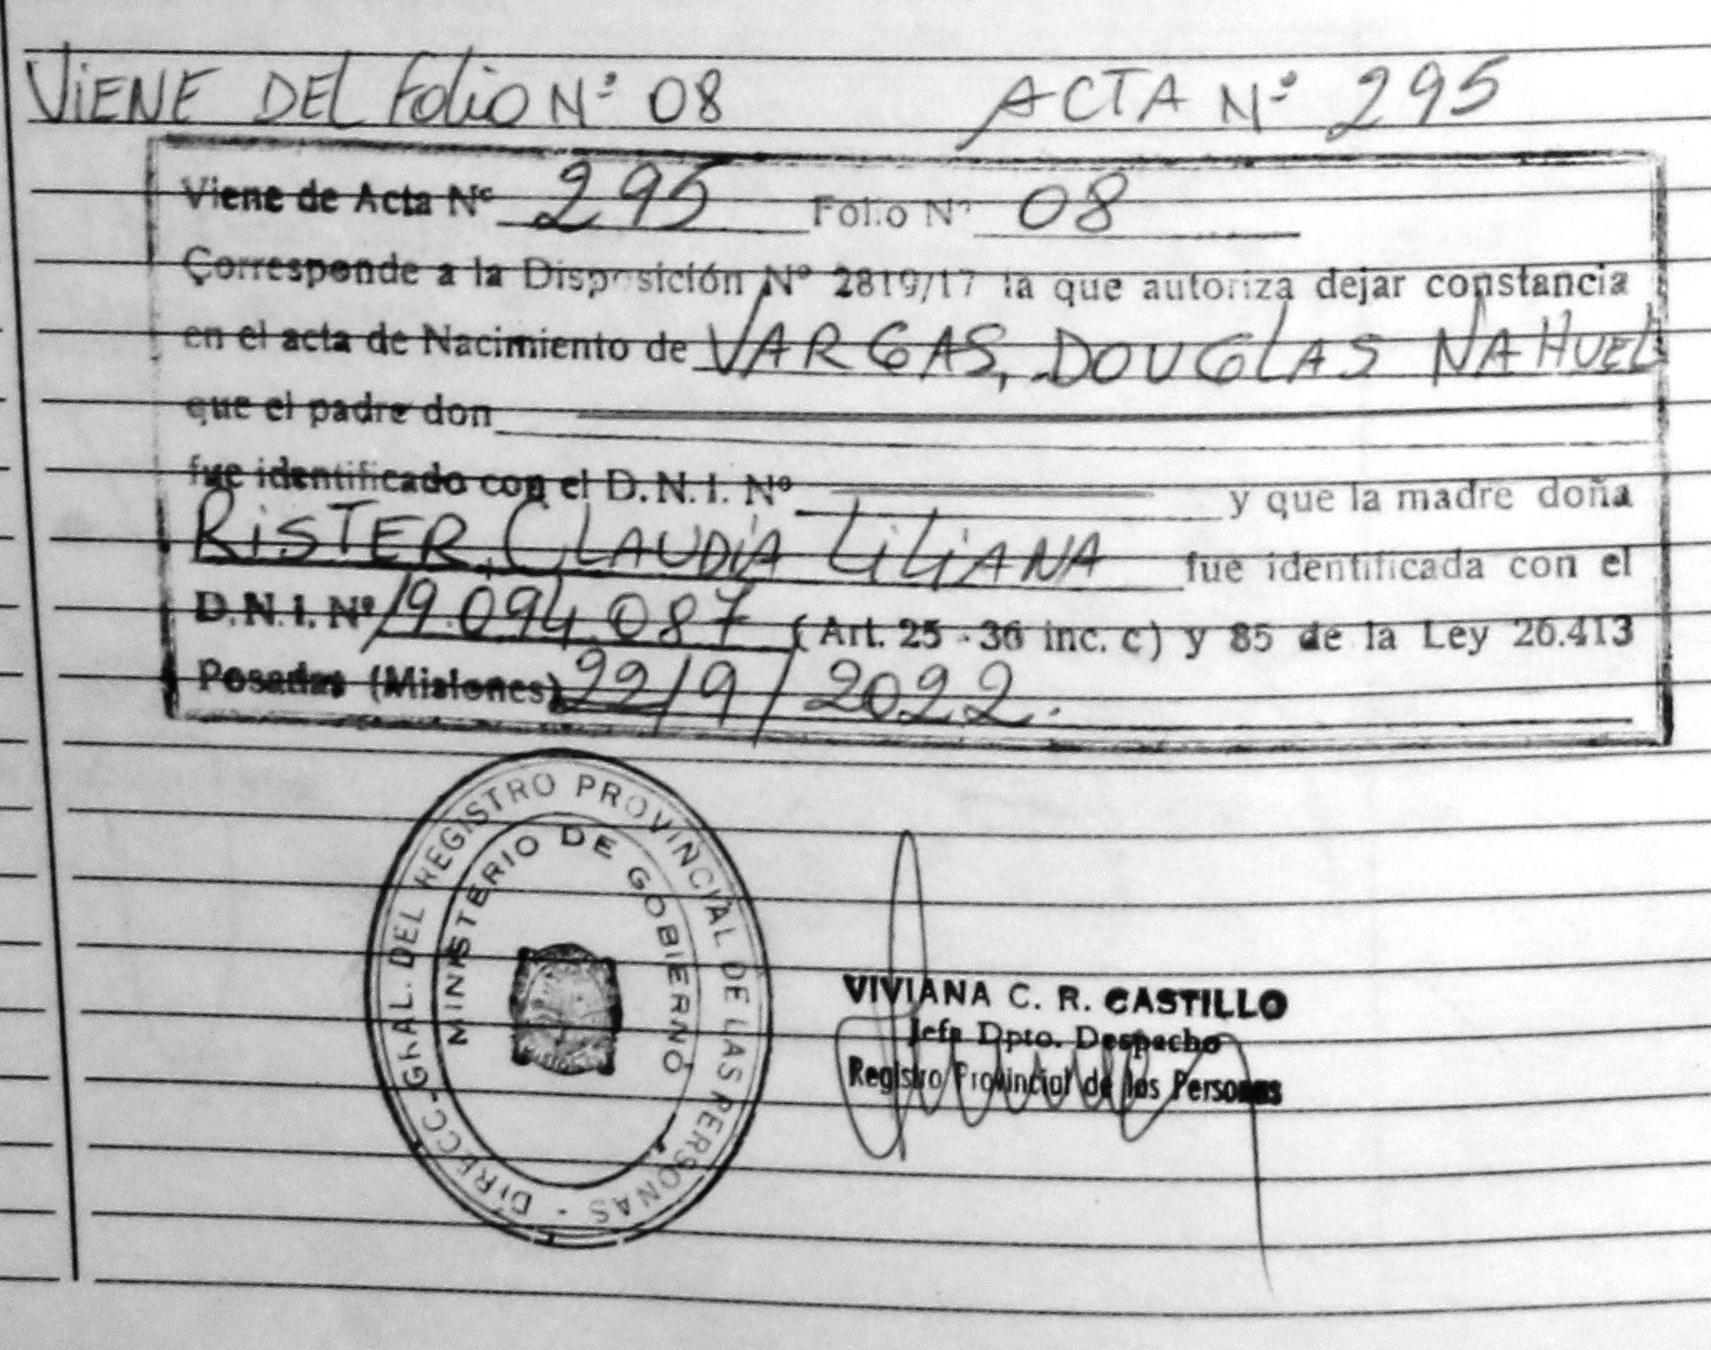 VIENE DEL Folio Nº 08 ACTA Nº 295
Viene de Acta Nº 295 Folio Nº 08
Corresponde a la Disposición Nº 2819/17 la que autoriza dejar constancia
en el acta de Nacimiento de VARGAS, DOUGLAS NAHUEL
que el padre don
fue identificado con el D.N.I. Nº y que la madre doña
RISTER, CLAUDIA LILIANA fue identificada con el
D.N.I. Nº 19.094.087 (Art. 25 - 36 inc. c) y 85 de la Ley 26.413
Posadas (Misiones) 22/9/2022.
DIRECC-GRAL. DEL REGISTRO PROVINCIAL DE LAS PERSONAS -
MINISTERIO DE GOBIERNO
VIVIANA C. R. CASTILLO
Jefa Dpto. Despacho
Registro Provincial de las Personas